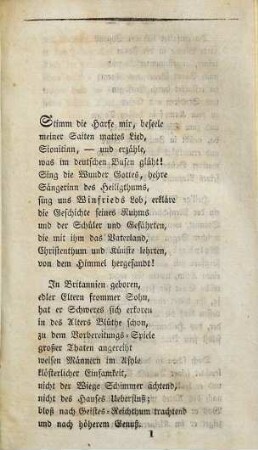 Stimm die Harfe mir, beseele
meiner Saiten mattes Lied,
Sionitinn, — und erzähle,
was im deutschen Busen glüht!
Sing die Wunder Gottes, hehre
Sängerinn des Heiligthums,
sing uns Winfrieds Lob, erkläre
die Geschichte seines Ruhms
und der Schüler und Gefährten,
die mit ihm das Vaterland,
Christenthum und Künste lehrten,
von dem Himmel hergesandt!
In Britannien geboren,
edler Eltern frommer Sohn,
hat er Schweres sich erkoren
in des Alters Blüthe schon,
zu dem Vorbereitungs-Spiele
großer Thaten angereiht
weisen Männern im Asyle
klösterlicher Einsamkeit,
nicht der Wiege Schimmer achtend,
nicht des Hauses Ueberfluß;
bloß nach Geistes-Reichthum trachtend
und nach höherem Genuß.
1